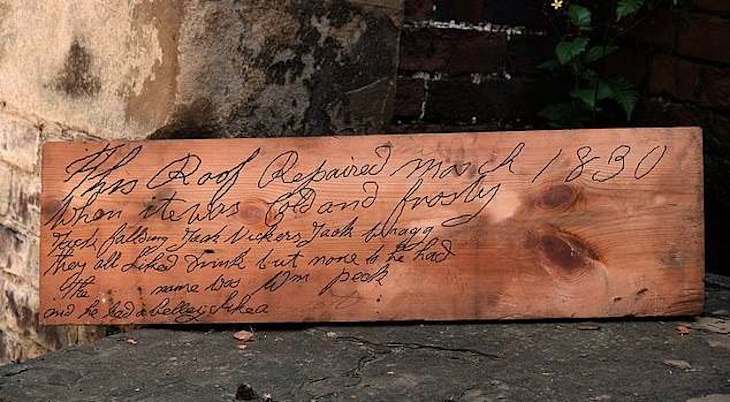 This Roof Repaired march 1830
when it was Cold and frosty
Jack Vickers Jack
they all Liked Drink but none to be had
the name was Wm peck
and he had a belley like a